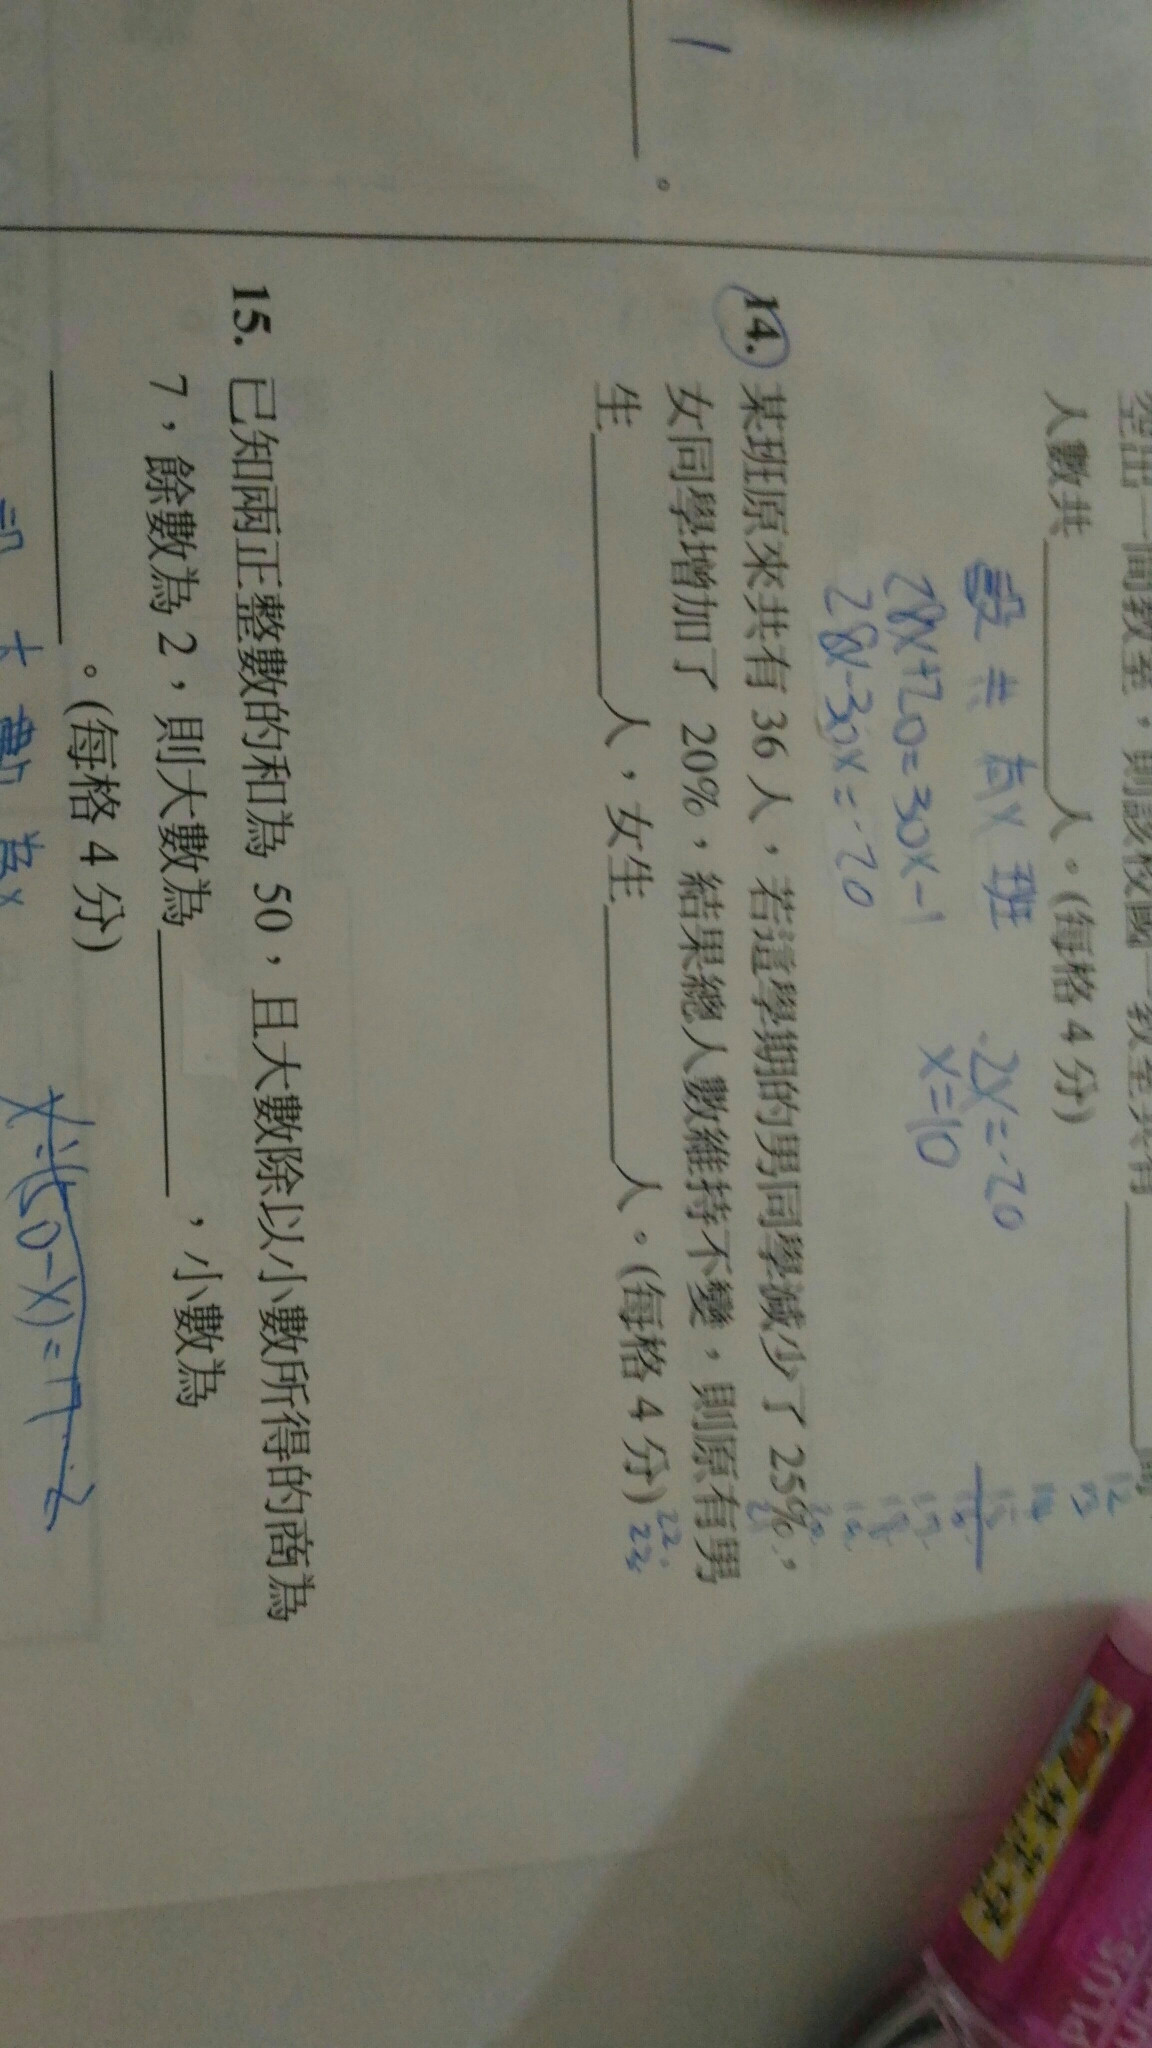 1
。
人數共 人。(每格 4 分)
設共有x班
28x+20=30x-1
28x-30x=-20
-2x=-20
x=10
14. 某班原來共有 36 人，若這學期的男同學減少了 25%，
女同學增加了 20%，結果總人數維持不變，則原有男
生 人，女生 人。(每格 4 分)
15. 已知兩正整數的和為 50，且大數除以小數所得的商為
7，餘數為 2，則大數為 ，小數為
。(每格 4 分)
設大數為x
x÷(50-x)=7…2
PLUS